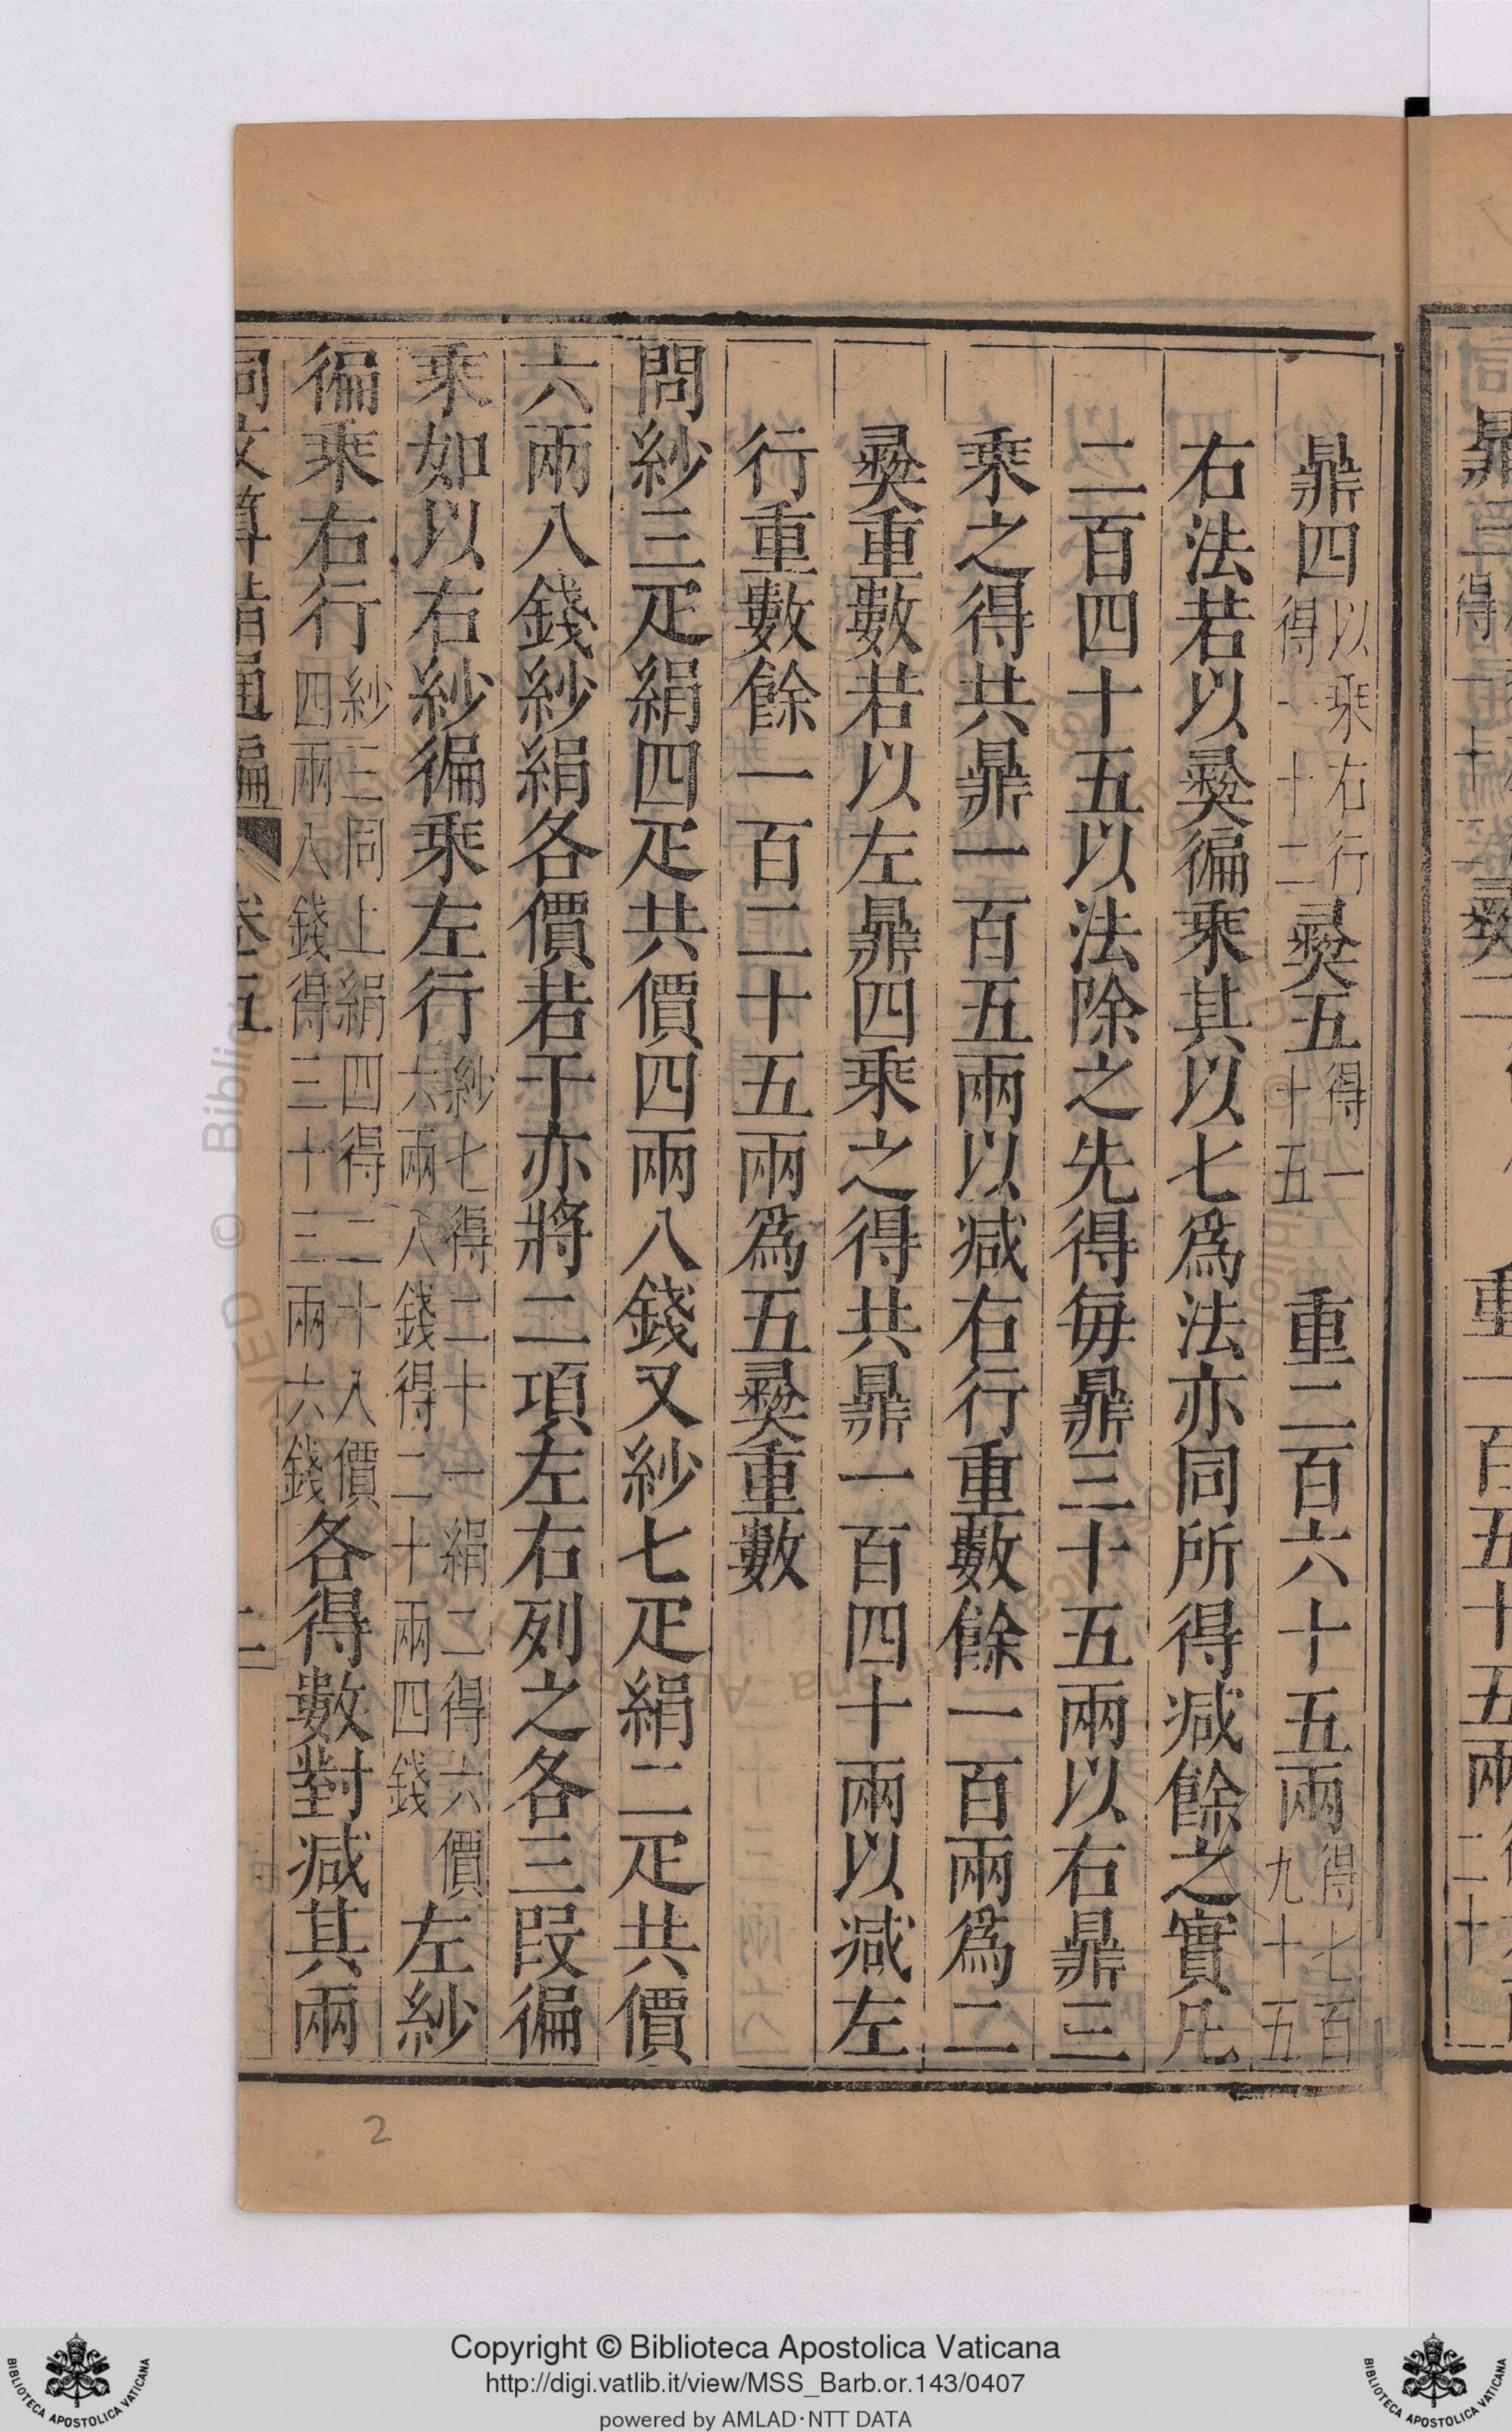 鼎四以乘右行得一十二彛五得一十五　重二百六十五兩得七百九十五
右法若以彛徧乘其以七爲法亦同所得减餘之實凡
二百四十五以法除之先得每鼎三十五兩以右鼎三
乘之得共鼎一百五兩以减右行重數餘一百兩爲二
彛重數若以左鼎四乘之得共鼎一百四十兩以减左
行重數餘一百二十五兩爲五彛重數
問紗三疋絹四疋共價四兩八錢又紗七疋絹二疋共價
六兩八錢紗絹各價若干亦將二項左右列之各三叚徧
乘如以右紗徧乘左行紗七得二十一絹二得六價六兩八錢得二十兩四錢左紗
徧乘右行紗三同上絹四得二十八價四兩八錢得三十三兩六錢各得數對减其兩
同文算指通編　卷五　二
2
Copyright © Biblioteca Apostolica Vaticana
http://digi.vatlib.it/view/MSS_Barb.or.143/0407
powered by AMLAD·NTT DATA
BIBLIOTECA APOSTOLICA VATICANA
BIBLIOTECA APOSTOLICA VATICANA